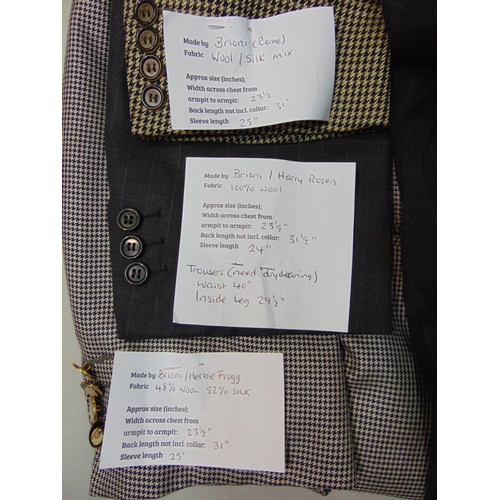 Made by Brioni (Rome)
Fabric Wool / Silk mix
Approx size (inches);
Width across chest from
armpit to armpit: 23½"
Back length not incl. collar: 31"
Sleeve length 25"
Made by Brioni / Harry Rosen
Fabric 100% wool
Approx size (inches);
Width across chest from
armpit to armpit: 23½"
Back length not incl. collar: 31½"
Sleeve length 24"
Trousers (need drycleaning)
waist 40"
Inside Leg 29½"
Made by Brioni / Herbie Frogg
Fabric 48% WOOL 52% SILK
Approx size (inches);
Width across chest from
armpit to armpit: 23½"
Back length not incl. collar: 31"
Sleeve length 25"